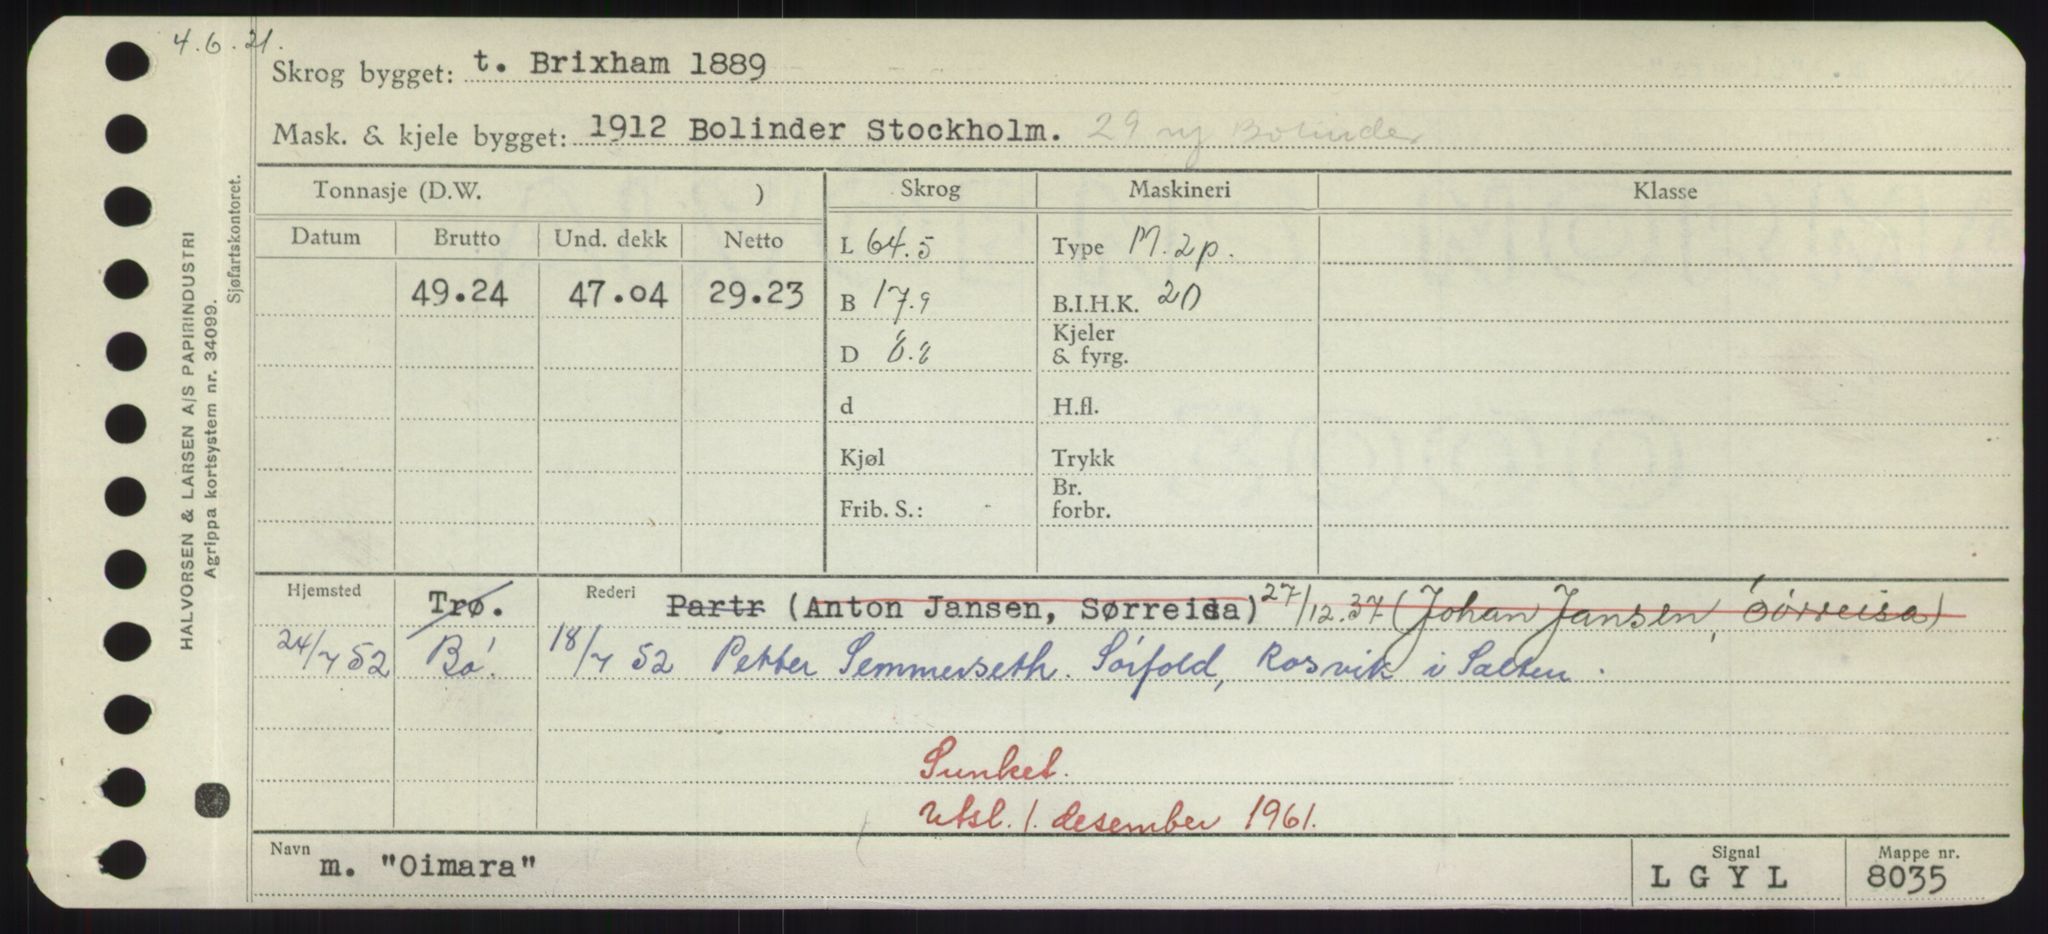 4.6.21.
Skrog bygget: t. Brixham 1889
Mask. & kjele bygget: 1912 Bolinder Stockholm. 29 ny Bolinder
Tonnasje (D.W. ) Skrog Maskineri Klasse
Datum Brutto Und. dekk Netto L 64.5 Type M. 2p.
49.24 47.04 29.23 B 17.9 B.I.H.K. 20
D 8.8 Kjeler
& fyrg.
d H.fl.
Kjøl Trykk
Frib. S.: Br.
forbr.
Hjemsted Trø. Rederi Partr (Anton Jansen, Sørreisa) 27/12.37 (Johan Jansen, Sørreisa)
24/7 52 Bø. 18/7 52 Petter Semmerseth. Sörfold, Rosvik i Salten.
Sunket.
Utsl. 1. desember 1961.
Navn m. "Oimara" Signal LGYL Mappe nr. 8035
HALVORSEN & LARSEN A/S PAPIRINDUSTRI
Agrippa kortsystem nr. 34099.
Sjøfartskontoret.